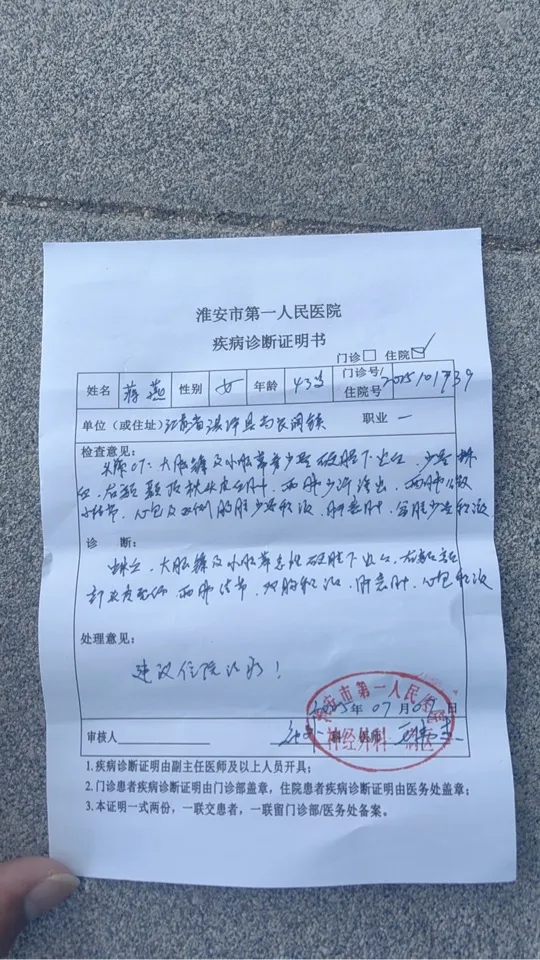 淮安市第一人民医院
疾病诊断证明书
门诊□ 住院☑
姓名 蒋燕 性别 女 年龄 43岁 门诊号/住院号
单位（或住址） 江苏省涟水县 职业 一
检查意见：
头颅CT：大脑镰及小脑幕少量硬膜下出血，少量
血，后 顶枕头皮血肿，两肺少许渗出，两肺
结节，心包及两侧胸腔少量积液，腹腔少量积液
诊 断：
大脑镰及小脑幕急性硬膜下出血，
两肺结节，双胸积液，心包积液
处理意见：
建议住院治疗！
2025年 07月07日
淮安市第一人民医院
神经外科 病区
审核人 科 医师
1.疾病诊断证明由副主任医师及以上人员开具；
2.门诊患者疾病诊断证明由门诊部盖章，住院患者疾病诊断证明由医务处盖章；
3.本证明一式两份，一联交患者，一联留门诊部/医务处备案。